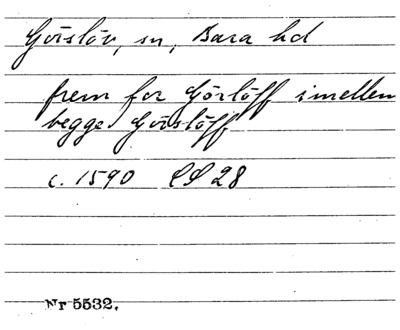 Görslöv, sn, Bara hd
frem for Görlöff imellen
begge Görslöff
c. 1590 LD 28
Nr 5532.